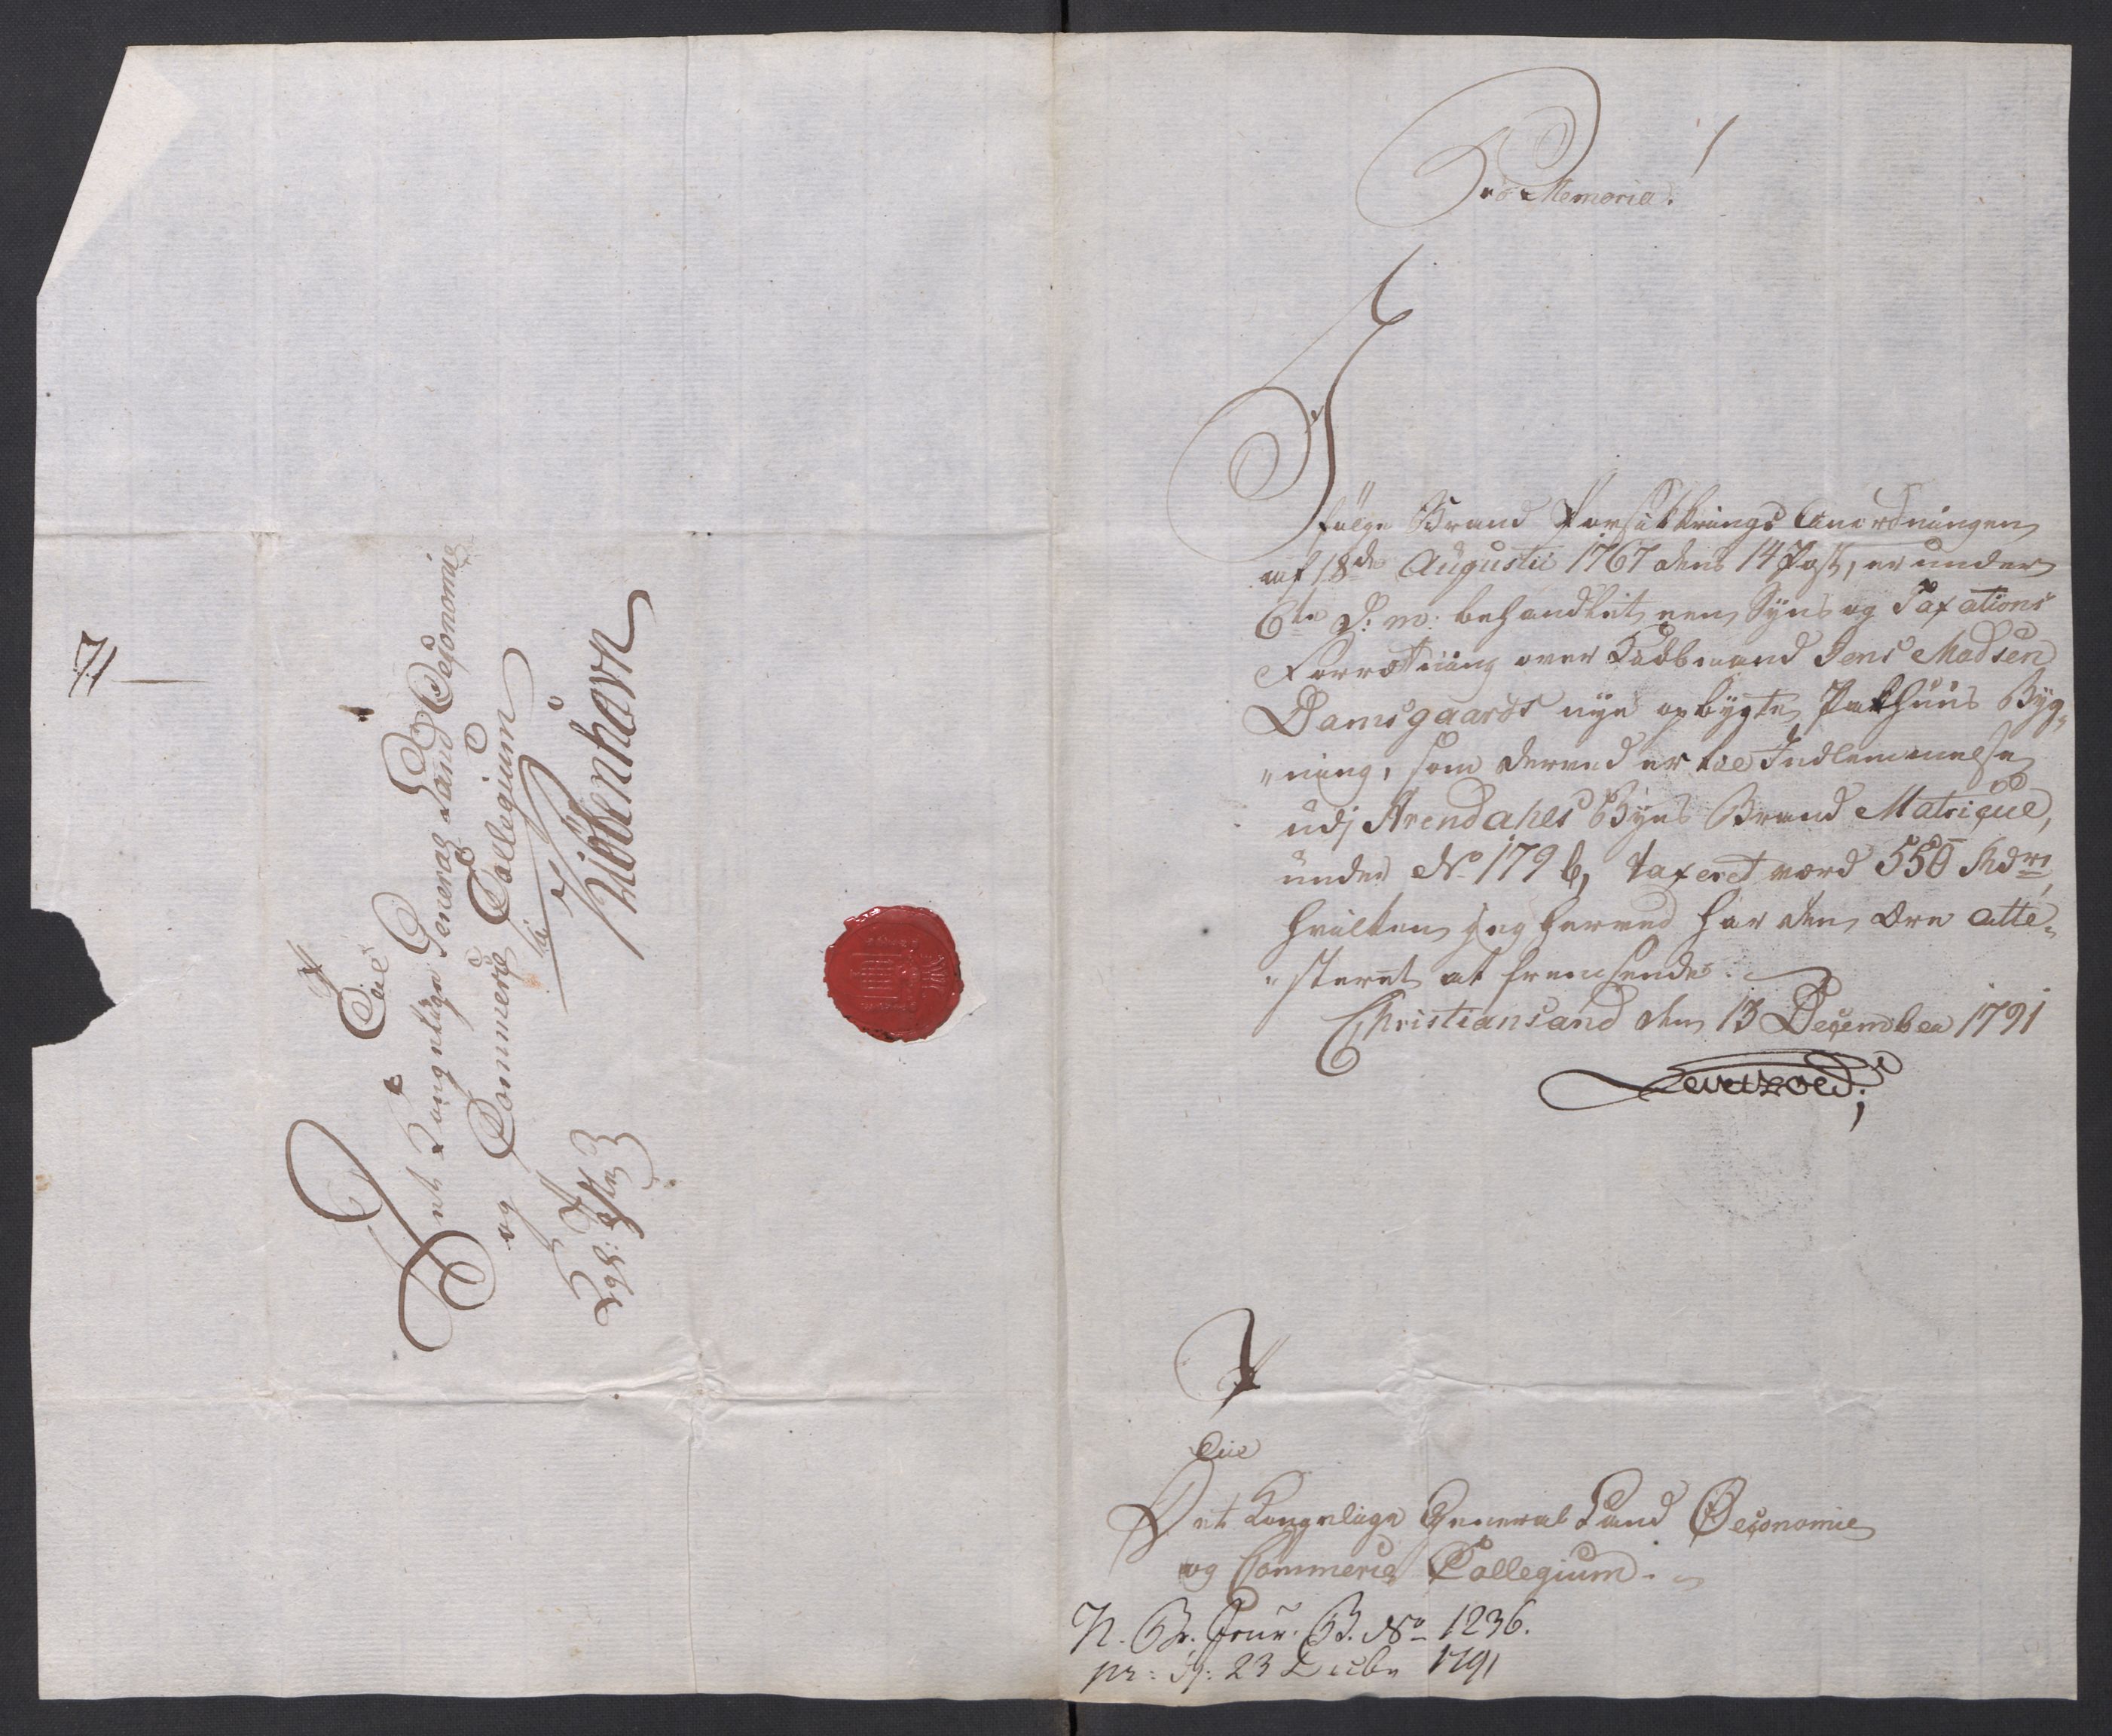 71
Til
Det Kongelige General Land Oeconomie
og Commerce Collegium
i
Kiöbenhavn
Kgl:
Pro Memoria.
Ifölge Brand Forsikkrings Anordningen
af 18de Augustii 1767 dens 14 Post, er under
6te d: m: behandlet een Syns og Taxations
Forrætning over Kiöbmand Jens Madsen
Damsgaards nye opbygte Pakhuus Byg„
„ning, som derved er til Indlemmelse
udj Arendahls Byes Brand Matricul,
under No 179 b, taxeret værd 550 Rdr,
hvilken jeg herved har den Ære atte„
„steret at fremsende.
Christiansand den 13 December 1791
Levetzow
Til
Det Kongelige General Land Oeconomie
og Commerce Collegium.
N. Br. Jour. B. No 1236.
pr: d: 23 Decbr 1791